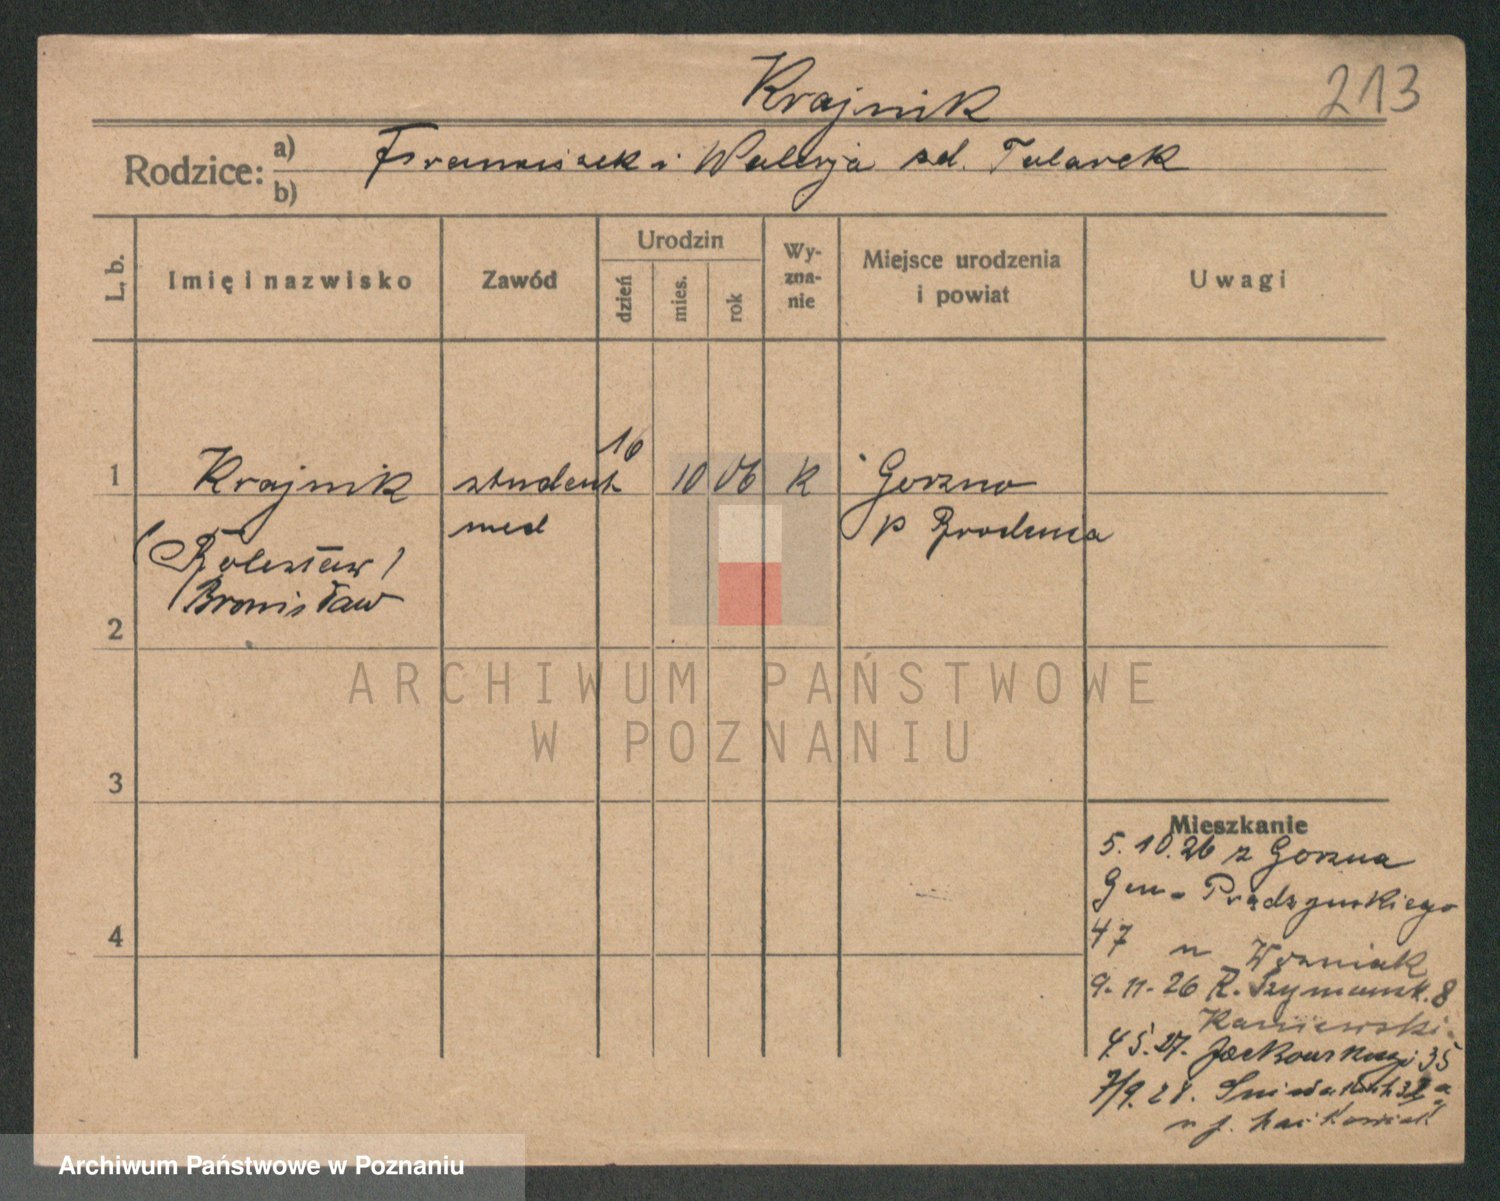 Krajnik
213
Rodzice:
a) Franciszek i Walerja zd. Tularek
b)
L. b.
Imię i nazwisko
Zawód
Urodzin
dzień
mies.
rok
Wy-
zna-
nie
Miejsce urodzenia
i powiat
Uwagi
1
Krajnik
student
16
10
06
k
Gorzno
med
p Brodnica
(Bolesław)
Bronisław
2
ARCHIWUM PAŃSTWOWE
W POZNANIU
3
Mieszkanie
5.10.26 z Gorzna
Gen. Prądzyńskiego
4
47 u Woźniak
9.11.26 R. Szymańsk. 8
Kaniewski
4.5.27. Jackowskiego 35
7/9.28.
Archiwum Państwowe w Poznaniu